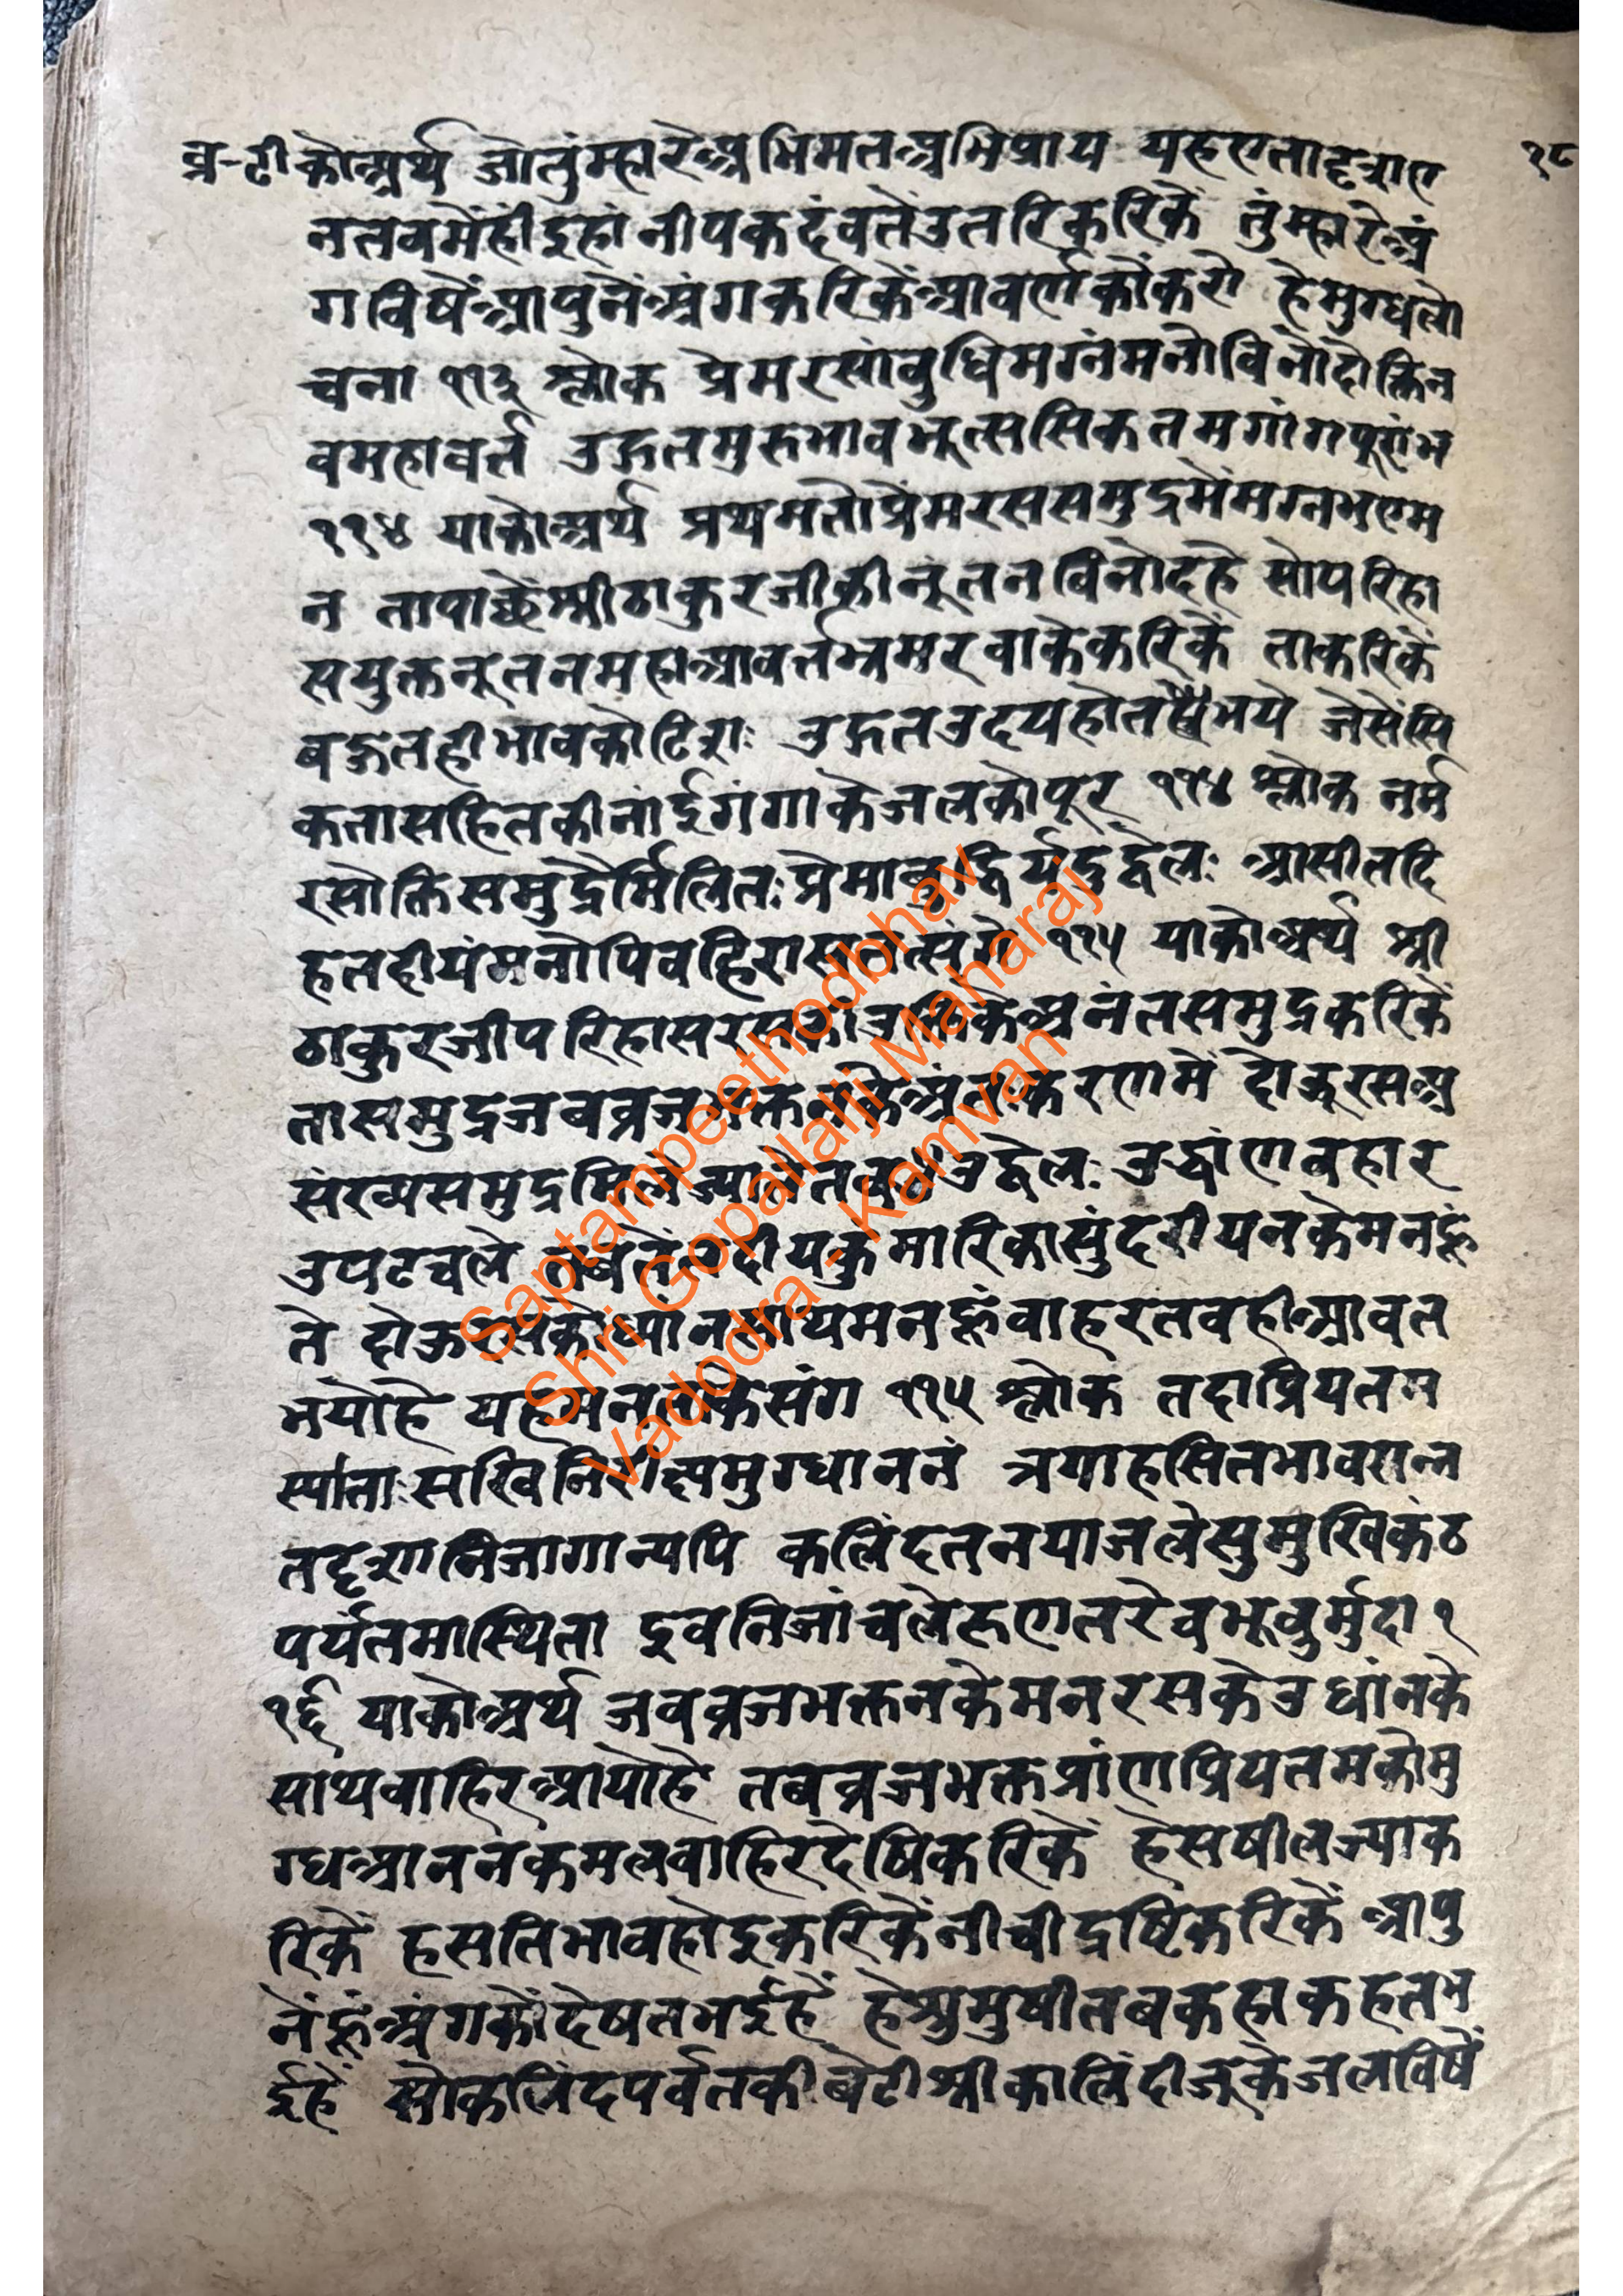 व्र-टी कोअर्थ जोतुंम्हारेअभिमतअभिप्राय यहएतादृशए १८
नतबमेंहीइहांनीपकदंबतेंउतरिकरिकें तुंम्हारेअं
गविषेंआपुनेंअंगकरिकेंआवर्णकोंकरों हेमुग्धलो
चना ११३ श्लोक प्रेमरसांबुधिमग्नंमनोविनोदोक्तिन
वमहावर्त उद्गतमुरुभावभृत्ससिकतमगांगपूरांभ
११४ याकोअर्थ प्रथमतोप्रेमरससमुद्रमेंमग्नभएम
न तापाछेंश्रीठाकुरजीकीनूतनविनोदहे सोपरिहा
सयुक्तनूतनमहाआवर्तभ्रमरवाकेकरिकें ताकरिकें
बहुतहीभावकोटिशः उद्गतउदयहोत भये जेसेंसि
कतासहितकीनांईगंगाकेजलकोपूर ११४ श्लोक नर्म
रसोक्तिसमुद्रैर्मिलितःप्रेमांबुद्धिर्यदुद्वेलः आसीतदि
हतहीयंमनोपिबहिरास ११५ याकोअर्थ श्री
ठाकुरजीपरिहासरस अनंतसमुद्रकरिकें
तासमुद्रजबव्रजभक्तनकेअंतःकरणमें दोऊरसअ
संख्यसमुद्रमिले उद्वेलः उद्धांणबहार
उपटचले कुमारिकासुंदरीयनकेमनहूं
ते दोऊरसको मनहूंबाहरतबहीआवत
भयोहे यह संग ११५ श्लोक तदाप्रियतम
स्याताःसखि मुग्धाननं त्रपाहसितभावसन्न
तदृशानिजागान्यपि कलिंदतनयाजलेसुमुखिकंठ
पर्यंतमास्थिता इवनिजांचलेहृणतरेबभूवुर्मुदा १
१६ याकोअर्थ जबव्रजभक्तनकेमनरसकेउधांनके
साथबाहिरआयोहे तबव्रजभक्तप्रांणप्रियतमकोमु
ग्धआननकमलबाहिरदेषिकरिकें हेसषीलज्याक
रिकें हसतिभावहोइकरिकेंनीचीद्रष्टिकरिकें आपु
नेंहूंअंगकोंदेषतभईहें हेश्रुमुषीतबकहाकहतभ
ईहें सोकलिंदपर्वतकीबेटीश्रीकालिंदीजूकेजलविषें
Saptampeethodbhav
Shri Gopallalji Maharaj
Vadodra - Kamvan